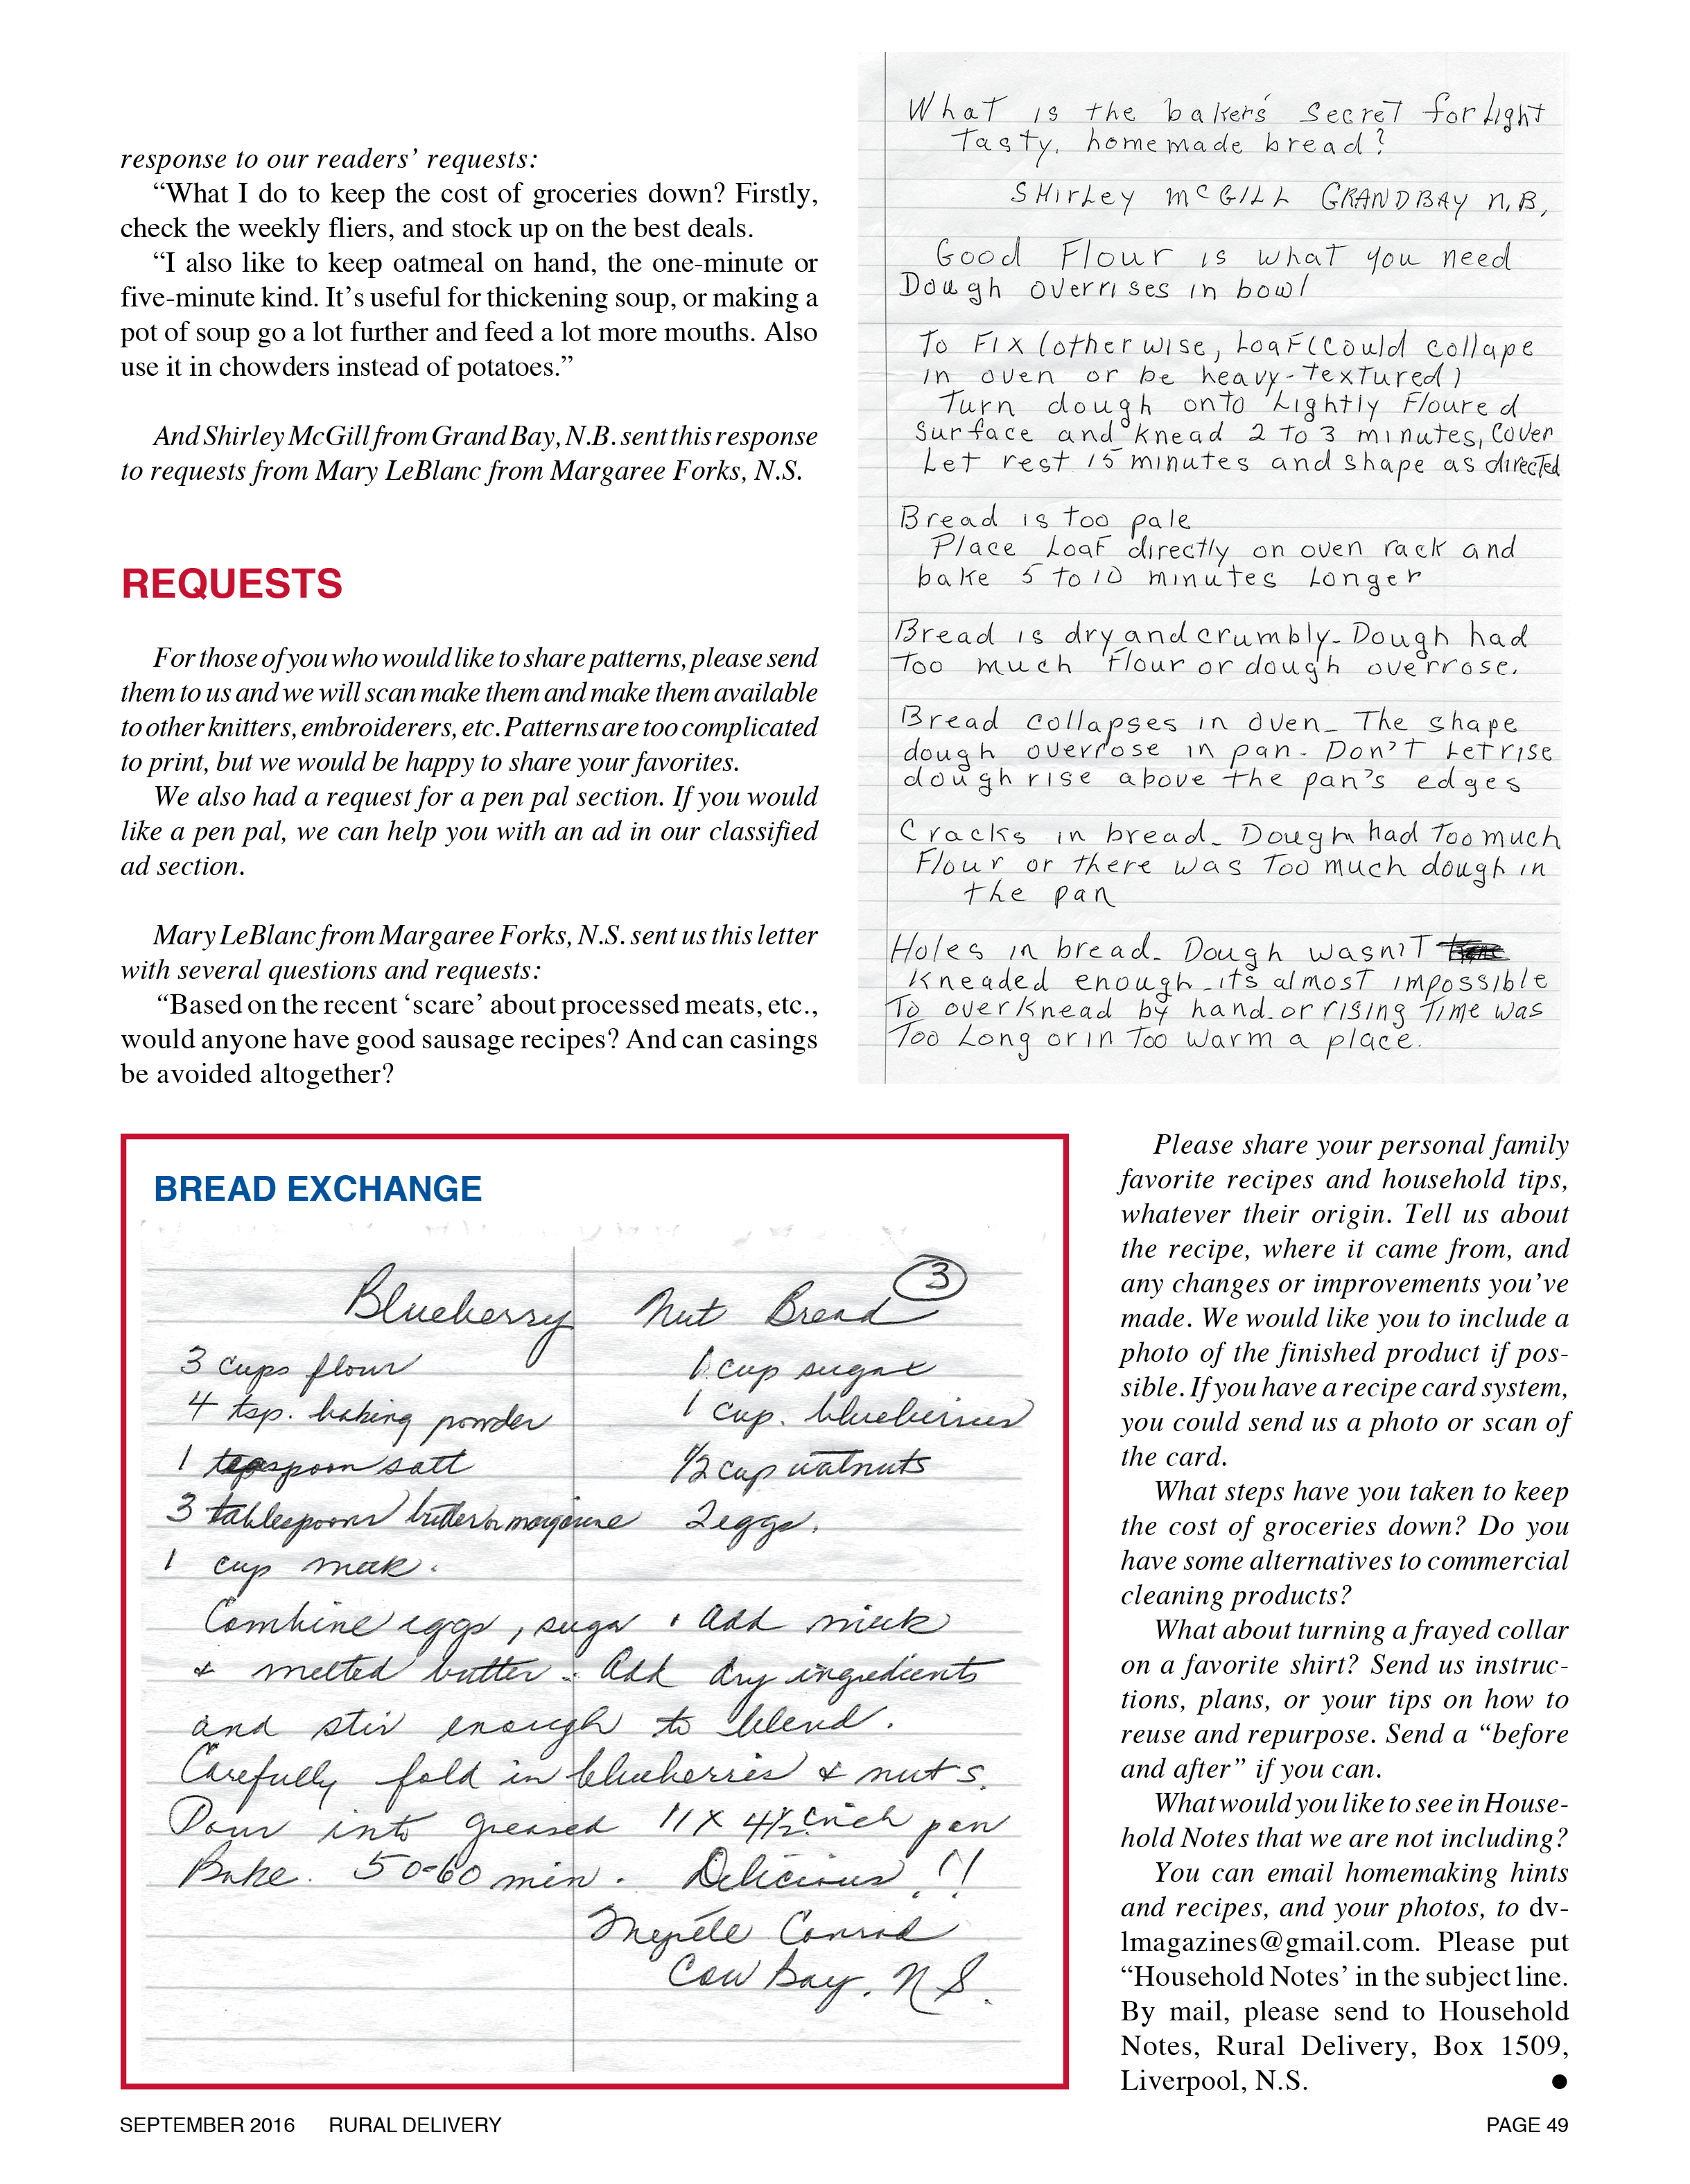 response to our readers’ requests:
“What I do to keep the cost of groceries down? Firstly,
check the weekly fliers, and stock up on the best deals.
“I also like to keep oatmeal on hand, the one-minute or
five-minute kind. It’s useful for thickening soup, or making a
pot of soup go a lot further and feed a lot more mouths. Also
use it in chowders instead of potatoes.”
And Shirley McGill from Grand Bay, N.B. sent this response
to requests from Mary LeBlanc from Margaree Forks, N.S.
REQUESTS
For those of you who would like to share patterns, please send
them to us and we will scan make them and make them available
to other knitters, embroiderers, etc. Patterns are too complicated
to print, but we would be happy to share your favorites.
We also had a request for a pen pal section. If you would
like a pen pal, we can help you with an ad in our classified
ad section.
Mary LeBlanc from Margaree Forks, N.S. sent us this letter
with several questions and requests:
“Based on the recent ‘scare’ about processed meats, etc.,
would anyone have good sausage recipes? And can casings
be avoided altogether?
What is the baker's secret for Light
Tasty, homemade bread?
SHirley McGILL GRANDBAY N.B,
Good Flour is what you need
Dough overrises in bowl
To Fix (otherwise, Loaf (Could collape
in oven or be heavy-textured)
Turn dough onto Lightly Floured
surface and knead 2 to 3 minutes, cover
Let rest 15 minutes and shape as directed
Bread is too pale
Place Loaf directly on oven rack and
bake 5 to 10 minutes Longer
Bread is dry and crumbly- Dough had
too much flour or dough overrose.
Bread collapses in oven- The shape
dough overrose in pan- Don't Let rise
dough rise above the pan's edges
Cracks in bread- Dough had too much
Flour or there was too much dough in
the pan
Holes in bread- Dough wasn't
kneaded enough-it's almost impossible
To overknead by hand-or rising time was
Too Long or in Too warm a place.
BREAD EXCHANGE
3
Blueberry Nut Bread
3 cups flour 1 cup sugar
4 tsp. baking powder 1 cup. blueberries
1 teaspoon salt 1/2 cup walnuts
3 tablespoons butter or margarine 2 eggs.
1 cup milk.
Combine eggs, sugar. add milk
& melted butter. Add dry ingredients
and stir enough to blend.
Carefully fold in blueberries & nuts.
Pour into greased 11 X 4 1/2 inch pan
Bake. 50-60 min. Delicious!!
Myrtle Conrad
Cow Bay, N.S.
Please share your personal family
favorite recipes and household tips,
whatever their origin. Tell us about
the recipe, where it came from, and
any changes or improvements you’ve
made. We would like you to include a
photo of the finished product if pos-
sible. If you have a recipe card system,
you could send us a photo or scan of
the card.
What steps have you taken to keep
the cost of groceries down? Do you
have some alternatives to commercial
cleaning products?
What about turning a frayed collar
on a favorite shirt? Send us instruc-
tions, plans, or your tips on how to
reuse and repurpose. Send a “before
and after” if you can.
What would you like to see in House-
hold Notes that we are not including?
You can email homemaking hints
and recipes, and your photos, to dv-
lmagazines@gmail.com. Please put
“Household Notes’ in the subject line.
By mail, please send to Household
Notes, Rural Delivery, Box 1509,
Liverpool, N.S. ●
SEPTEMBER 2016 RURAL DELIVERY PAGE 49